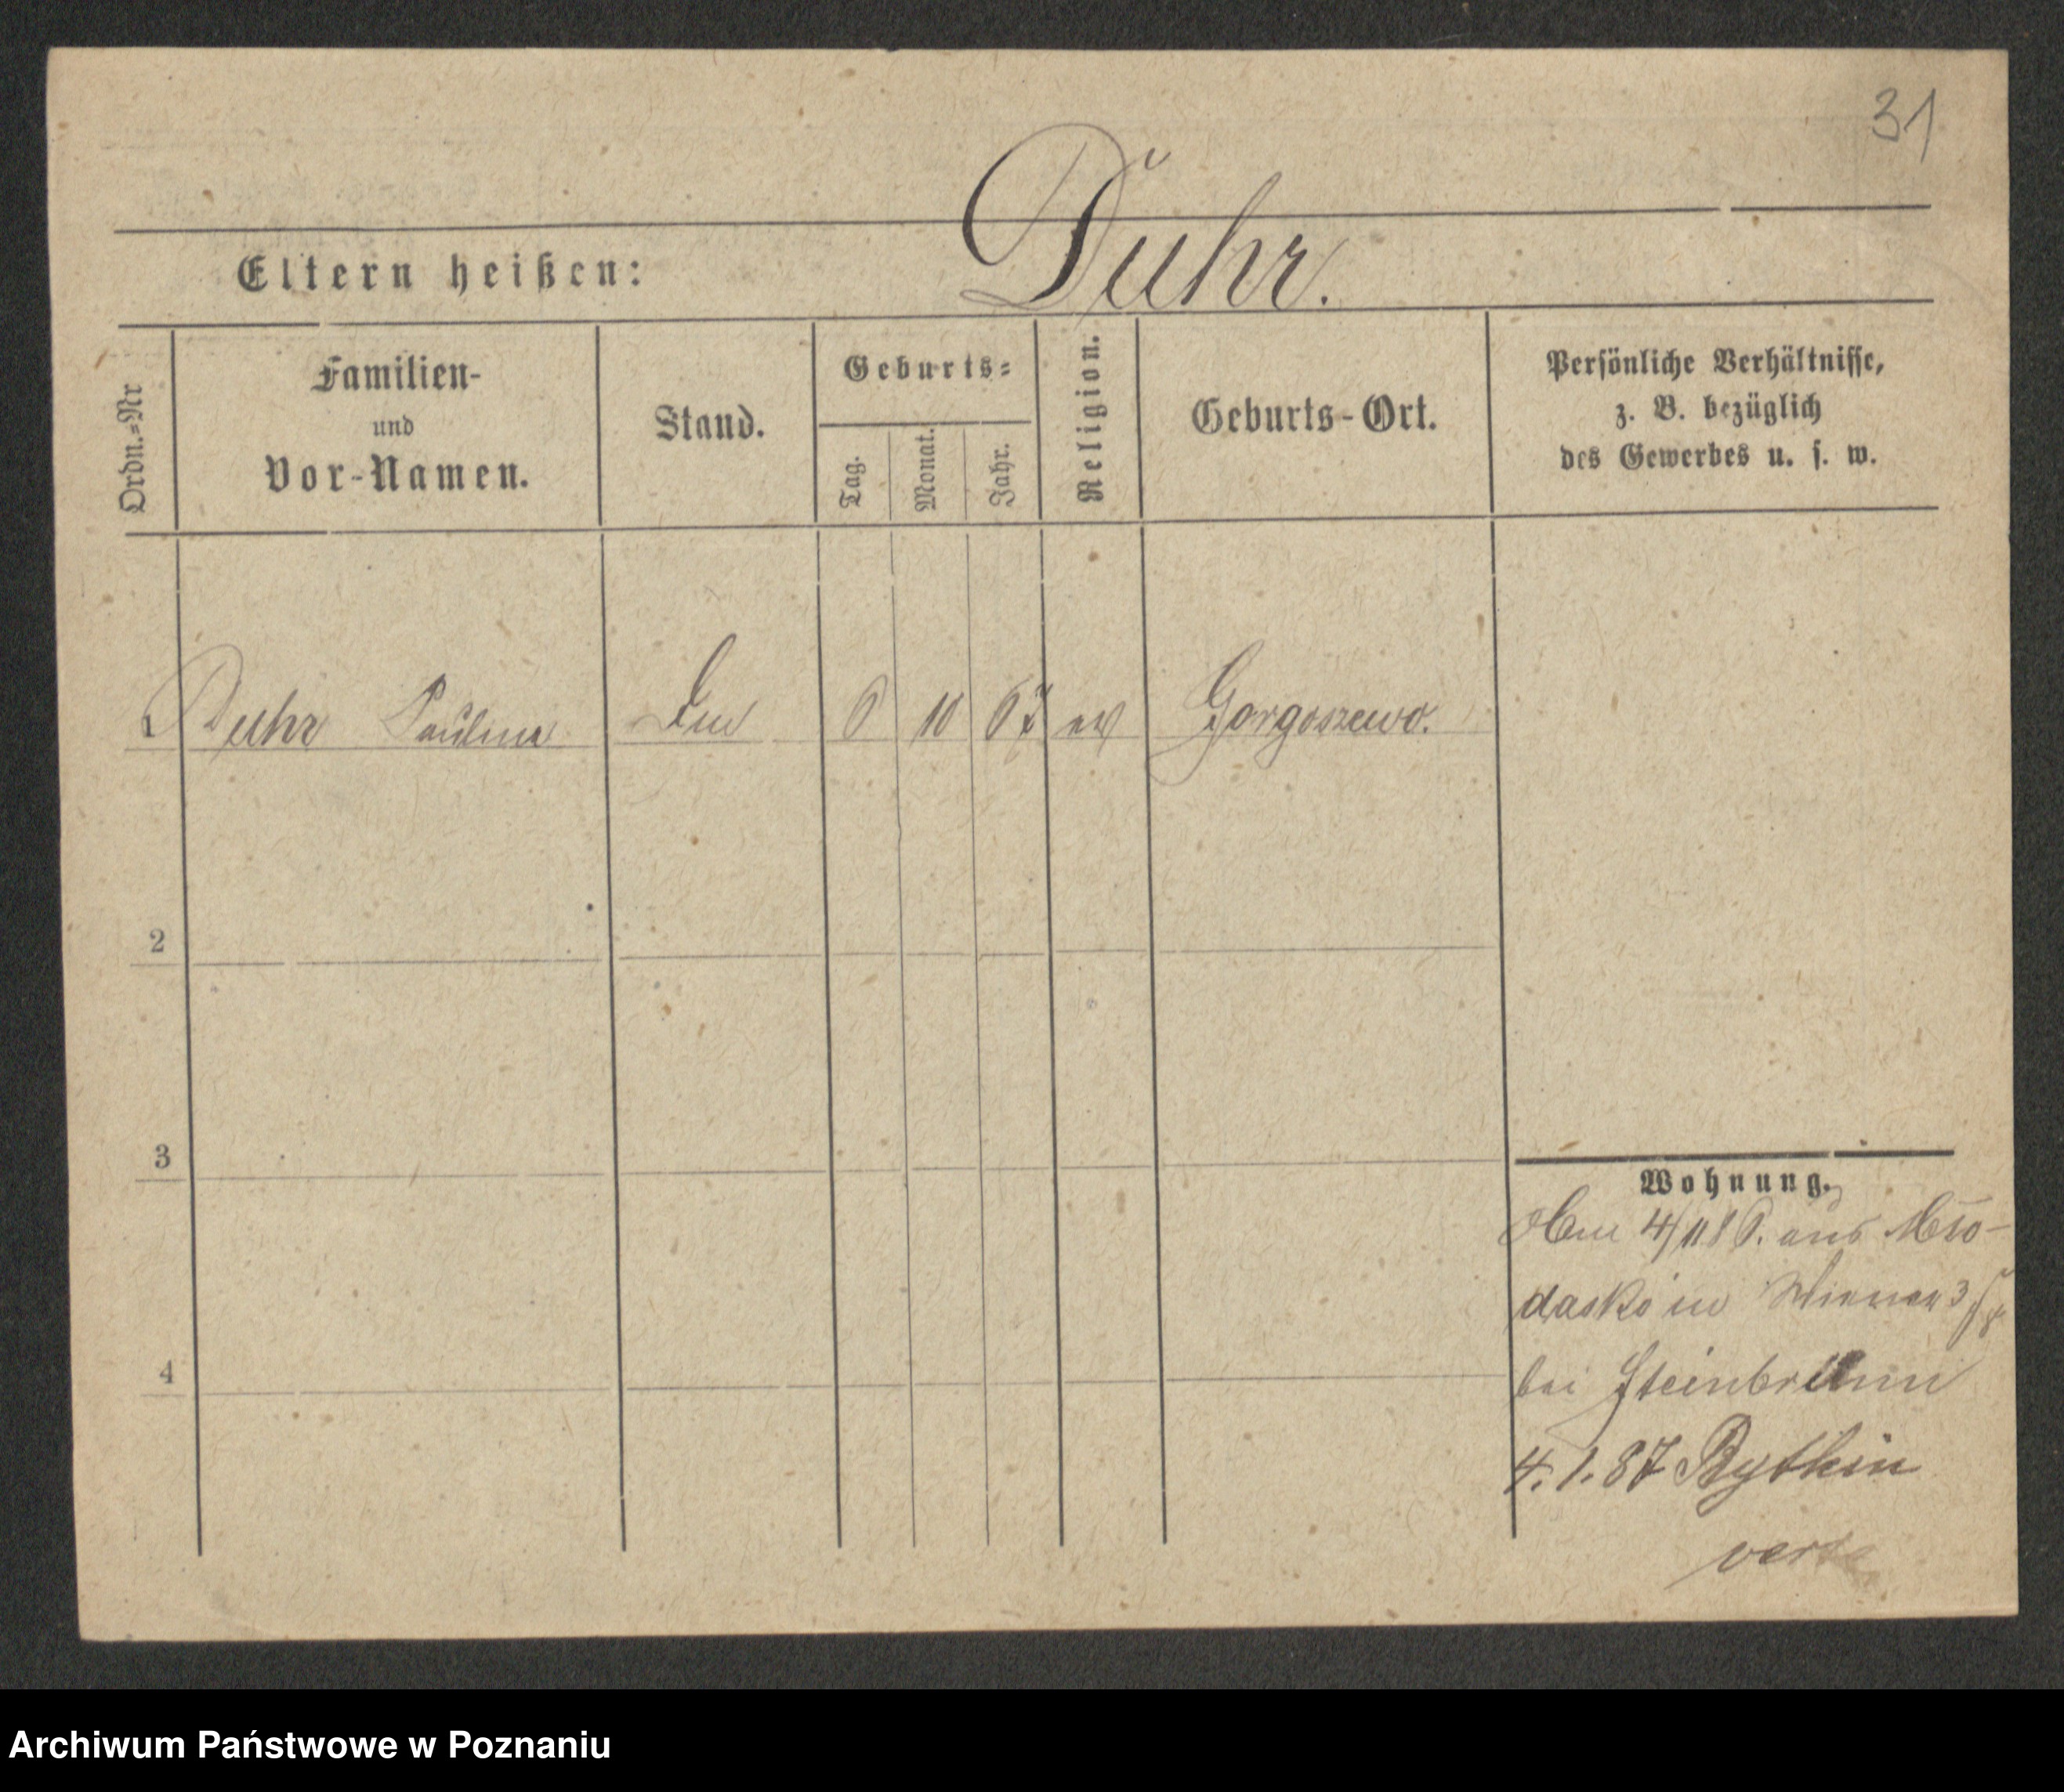 31
Eltern heißen: Duhr.
Ordn.=Nr
Familien-
und
Vor-Namen.
Stand.
Geburts=
Tag.
Monat.
Jahr.
Religion.
Geburts-Ort.
Persönliche Verhältnisse,
z. B. bezüglich
des Gewerbes u. s. w.
1 Duhr Paulina 6 10 67 ev Gorgoszewo.
2
3
4
Wohnung.
4/11 86. aus Mro-
dasko in
bei Steinbrunn
4. 1. 87 Bythin
Archiwum Państwowe w Poznaniu